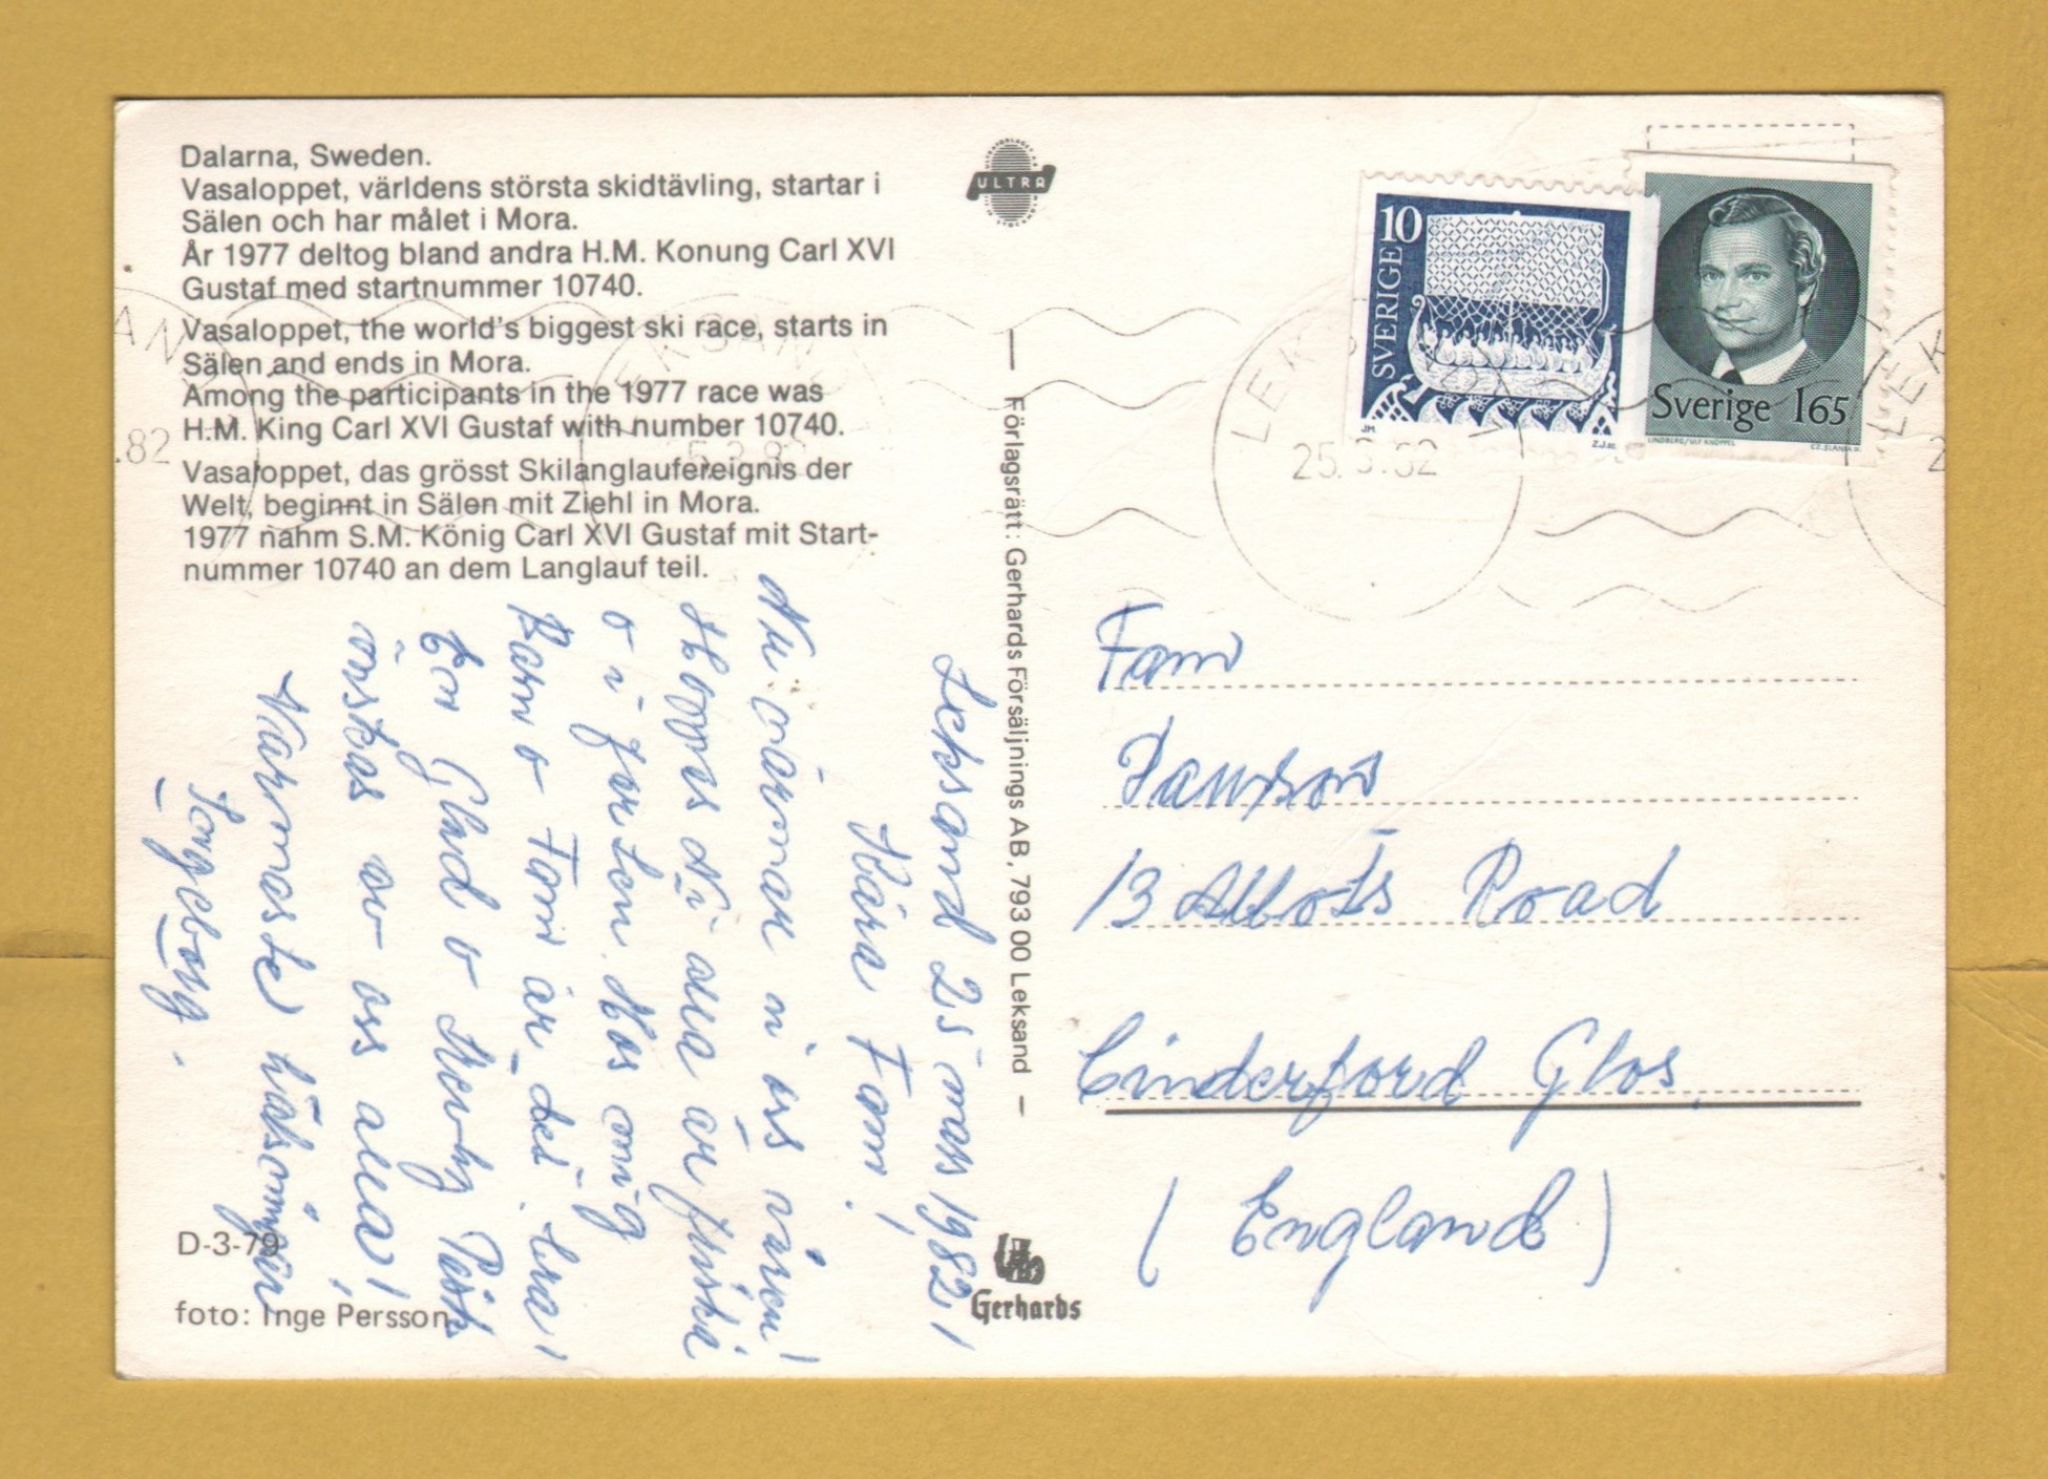 Dalarna, Sweden.
Vasaloppet, världens största skidtävling, startar i
Sälen och har målet i Mora.
År 1977 deltog bland andra H.M. Konung Carl XVI
Gustaf med startnummer 10740.
Vasaloppet, the world's biggest ski race, starts in
Sälen and ends in Mora.
Among the participants in the 1977 race was
H.M. King Carl XVI Gustaf with number 10740.
Vasaloppet, das grösst Skilanglaufereignis der
Welt, beginnt in Sälen mit Ziehl in Mora.
1977 nahm S.M. König Carl XVI Gustaf mit Start-
nummer 10740 an dem Langlauf teil.
Leksand 25 mars 1982
Kära Fam!
Nu våren!
Hoppas Ni alla är friska
o i form. Hos mig
Barn o Fam är det bra!
En Glad o Påsk
önskas av oss alla!
Varmaste hälsningar
Ingeborg.
D-3-79
foto: Inge Persson
ULTRA
Förlagsrätt: Gerhards Försäljnings AB, 793 00 Leksand
Gerhards
10
SVERIGE
JM.
Z.J.sc.
Sverige 165
LINDBERG/ULF KNÖPPEL
CZ.SLANIA SC.
LEKSAND
25.3.82
Fam
13 Abbots Road
Cinderford Glos.
(England)